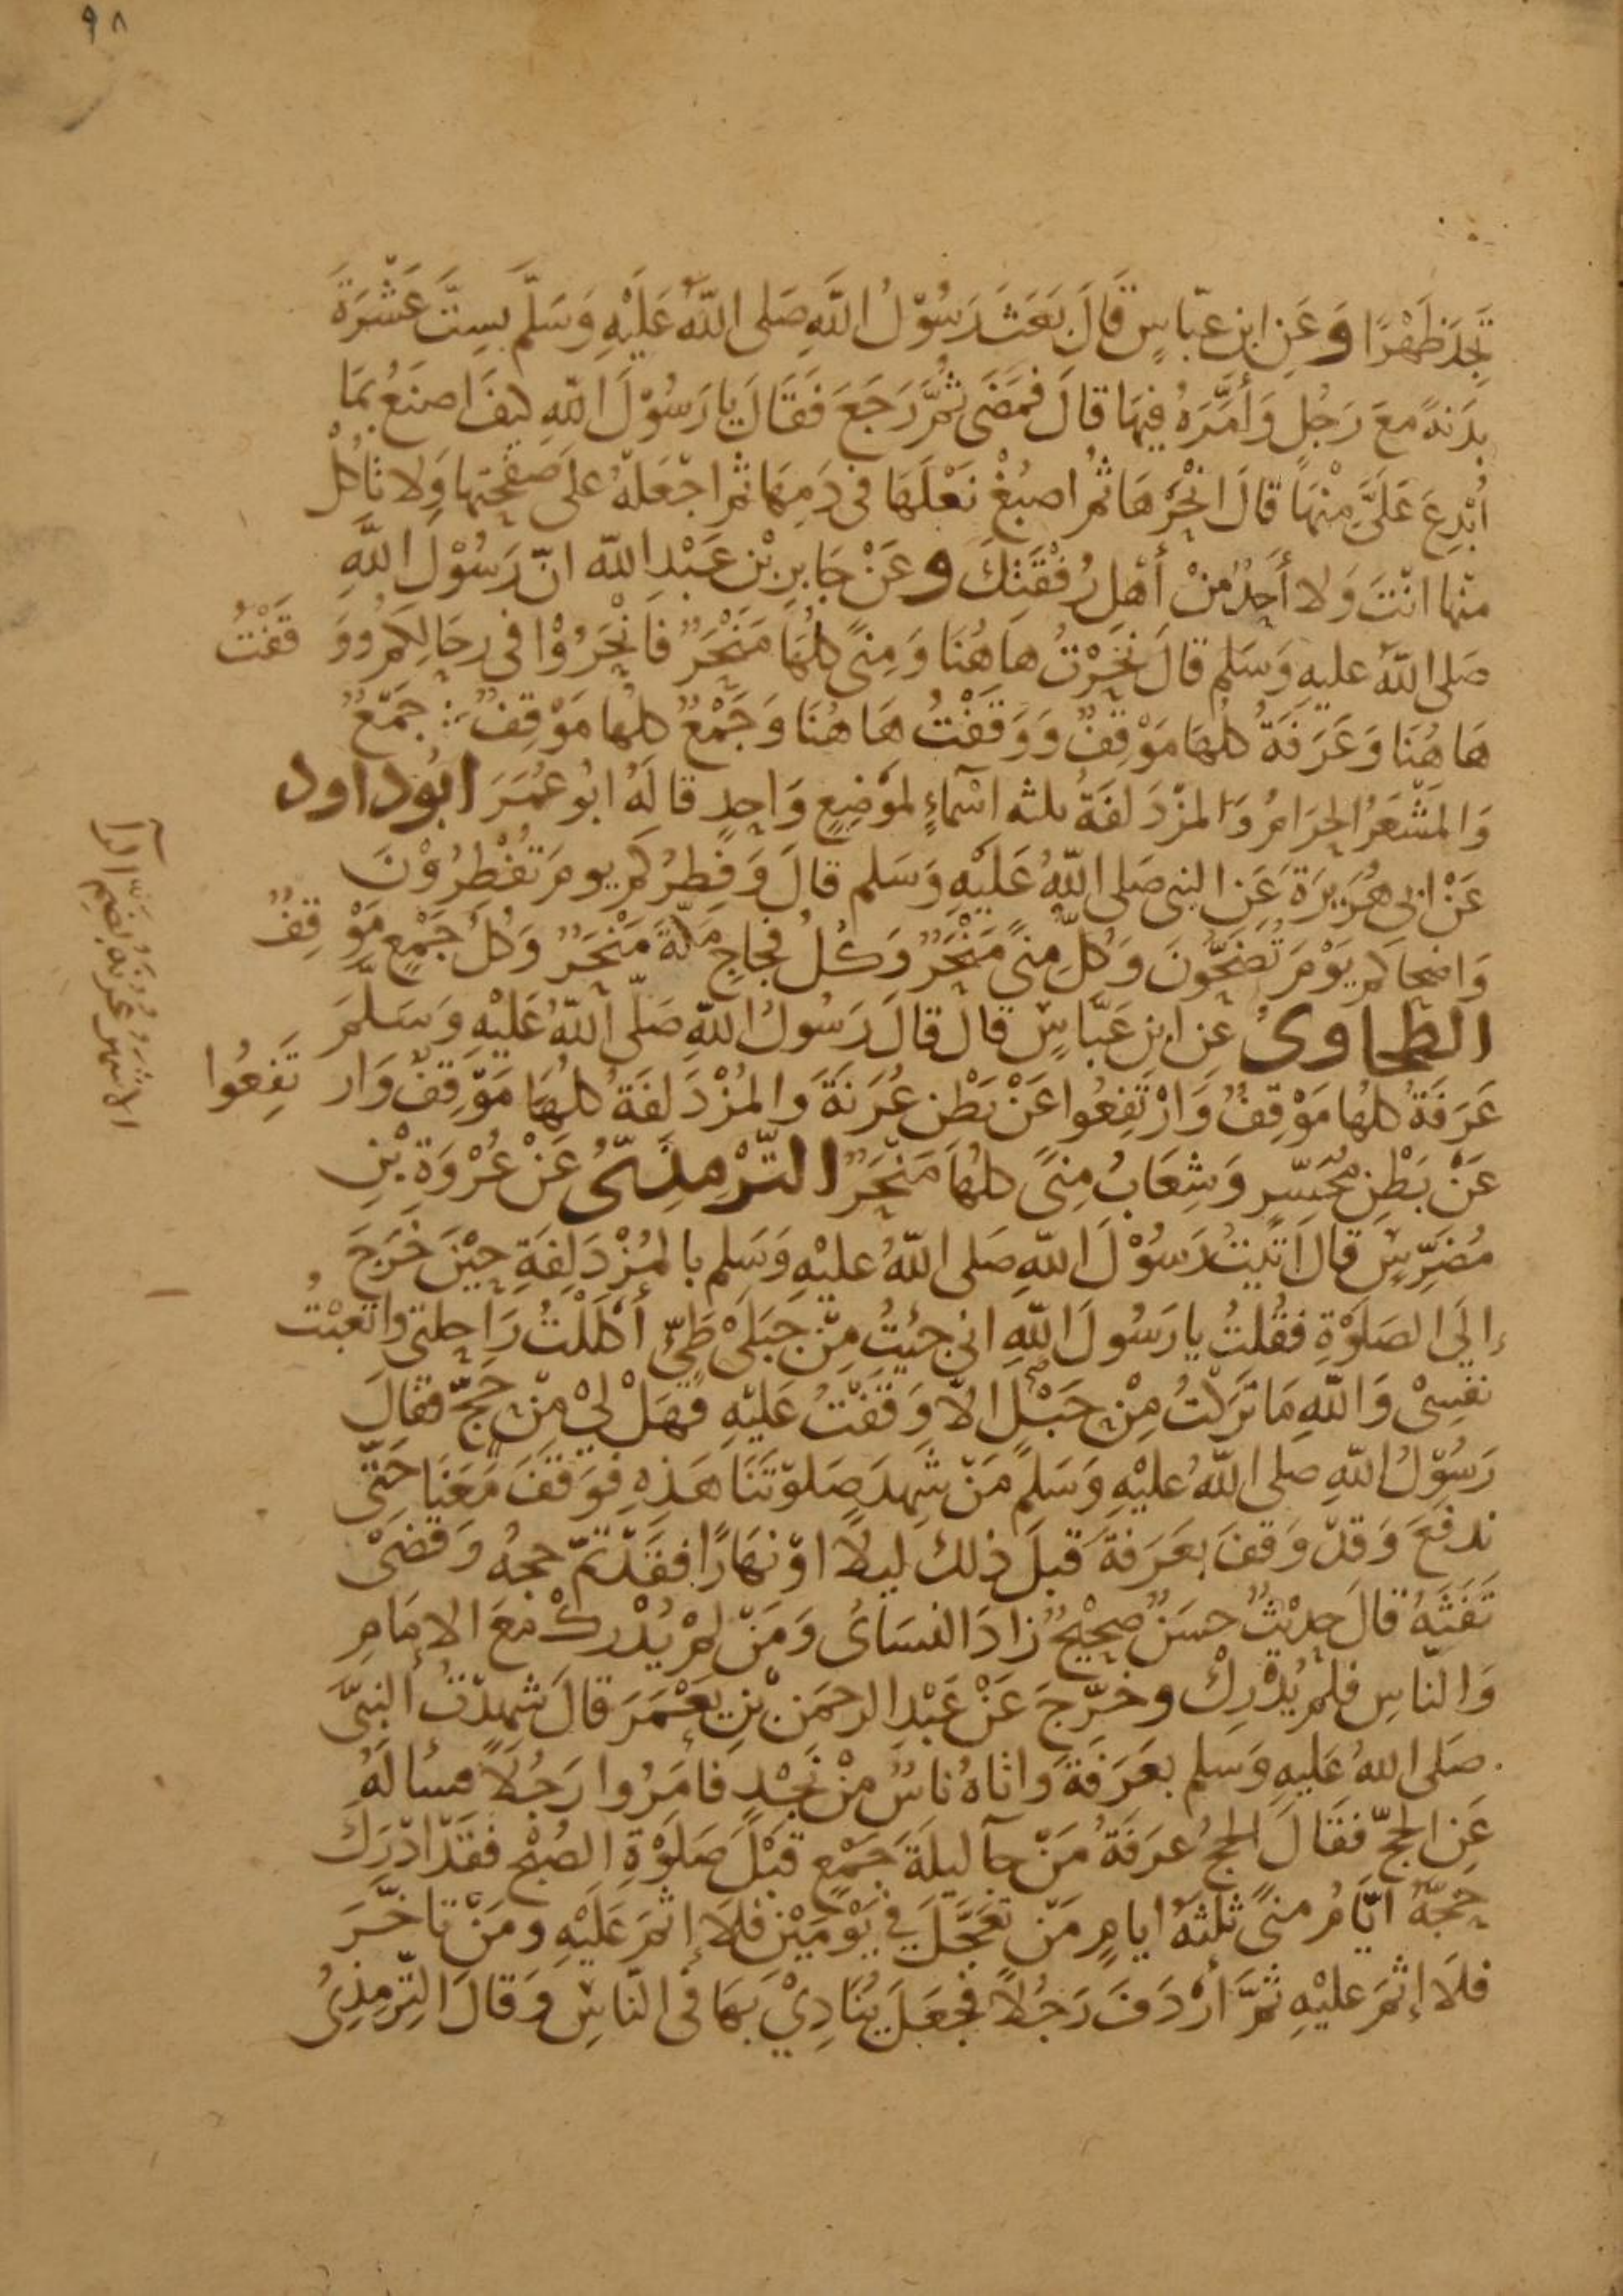 ٩٨
تَجِدَ ظَهْرًا وَعَنِ ابنِ عبّاسٍ قَالَ بَعَثَ رَسُوْلُ اللَّهِ صَلى اللّهُ عَلَيْهِ وَسَلَّمَ بِسِتَّ عَشْرَةَ
بدَنةً معَ رَجُلٍ وَأَمَّرَهُ فِيهَا قالَ فمَضَى ثُمَّ رَجَعَ فَقَالَ يا رَسُوْلَ اللّهِ كيفَ اصنَعُ بمَا
أُبْدِعَ عَلَيَّ مِنْهَا قالَ انْحَرْهَا ثم اصبُغْ نَعْلَهَا فى دَمِهَا ثم اجْعَلْهُ علَى صَفْحَتِها وَلا تأكُلْ
منها انْتَ وَلا أَحَدٌ مِنْ أَهْلِ رُفْقَتِكَ وعَنْ جَابِرِ بْنِ عَبْدِ اللّه انّ رَسُوْلَ اللَّهِ
صَلى اللّهُ عليهِ وَسَلم قالَ نَحَرْتُ هَاهُنَا وَمِنىً كلهَا مَنْحَرٌ فَانْحَرُوْا فى رِحَالِكُمْ وَوَقَفْتُ
هَاهُنَا وَعَرَفَةُ كلُهَا مَوْقِفٌ وَوَقَفْتُ هَاهُنَا وَجَمْعٌ كلهَا مَوْقِفٌ ∴ جَمْعٌ
وَالمَشْعَرُ الحَرَامُ وَالمزْدَلفَةُ ثلثه اسْمآءٍ لمَوْضِعٍ وَاحِدٍ قالَهُ ابُو عُمَرَ ابُوداود
عَنْ ابى هُرَيرَةَ عَنِ النبى صَلى اللّهُ عَلَيْهِ وَسَلم قالَ وَفِطرُكم يومَ تُفْطِرُوْنَ
وَاضحاكم يَوْمَ تُضَحُّونَ وَكُلُّ مِنىً مَنْحَرٌ وَكُلُ فجَاجِ مَكّةَ مَنْحَرٌ وَكُلُ جَمْعٍ مَوْقِفٌ
الطحاوىُ عَنِ ابنِ عَبَّاسٍ قالَ قالَ رَسُولُ اللّهِ صَلّى اللّهُ عَلَيْهِ وَسَلمَ
عَرَفَةُ كلهَا مَوْقِفٌ وَارْتَفِعُوا عَنْ بَطْنِ عُرَنَةَ وَالمُزْدَلفَةُ كلهَا مَوْقِفٌ وَارتَفِعُوا
عَنْ بَطْنِ مُحَسِّرٍ وَشِعَابُ مِنىً كلهَا مَنْحَرٌ التّرْمِذِىُّ عَنْ عُرْوَةَ بْنِ
مُضَرِّسٍ قالَ اتَيتُ رَسُوْلَ اللّهِ صَلى اللّهُ عليْهِ وَسَلم بالمُزْدَلِفَةِ حِيْنَ خَرَجَ
إلَى الصَلوٰةِ فقُلتُ يا رَسُولَ اللّهِ انى جئيتُ مِنْ جَبَلَىْ طَىِّ أَكْلَلْتُ رَاحِلتى واتعَبْتُ
نفسِىْ وَاللّهِ مَا تَرَكْتُ مِنْ حَبْلٍ الاّ وَقَفْتُ عَلَيْهِ فَهَلْ لِىْ مِنْ حَجّ فقالَ
رَسُوْلُ اللّهِ صلى اللّهُ عليْهِ وَسَلم مَنْ شهدَ صَلوٰتَنَا هَذِهِ فوَقفَ مَعَنَا حَتّى
ندفعَ وَقدْ وَقفَ بعَرَفةَ قبلَ ذلكَ ليلاً اوْ نهَارًا فقَدْ تمّ حجهُ وَقضَىْ
تَفَثَهُ قالَ حديْثٌ حسَنٌ صحِيْحٌ زادَ النسَائىُ وَمَنْ لمْ يُدْرِكْ معَ الإمَامِ
وَالنّاسِ فلمْ يُدْرِكْ وخرّجَ عَنْ عَبْدِ الرحمَنِ بْنِ يَعْمَرَ قالَ شهدْتُ النبىَّ
صَلى اللّهُ عَلَيهِ وَسَلم بعَرَفَةَ وَاتاهُ نَاسٌ مِنْ نَجْدٍ فأمَرُوا رَجُلاً فسألَهُ
عَنِ الحجّ فقَالَ الحجُ عَرَفَةُ مَنْ جآ ليلَةَ جَمْعٍ قبْلَ صَلوٰةِ الصُبْحِ فقَدْ ادْرَكَ
حَجّهُ ايّامُ منىً ثلثةُ ايامٍ مَنْ تعَجَّلَ فى يَوْمَيْنِ فلاَ إثمَ عَلَيْهِ ومَنْ تاخّرَ
فلاَ إثمَ عليْهِ ثُمَّ أرْدَفَ رَجُلاً فجَعَلَ يُنَادِىْ بهَا فى النّاسِ وَقالَ التّرمِذىُ